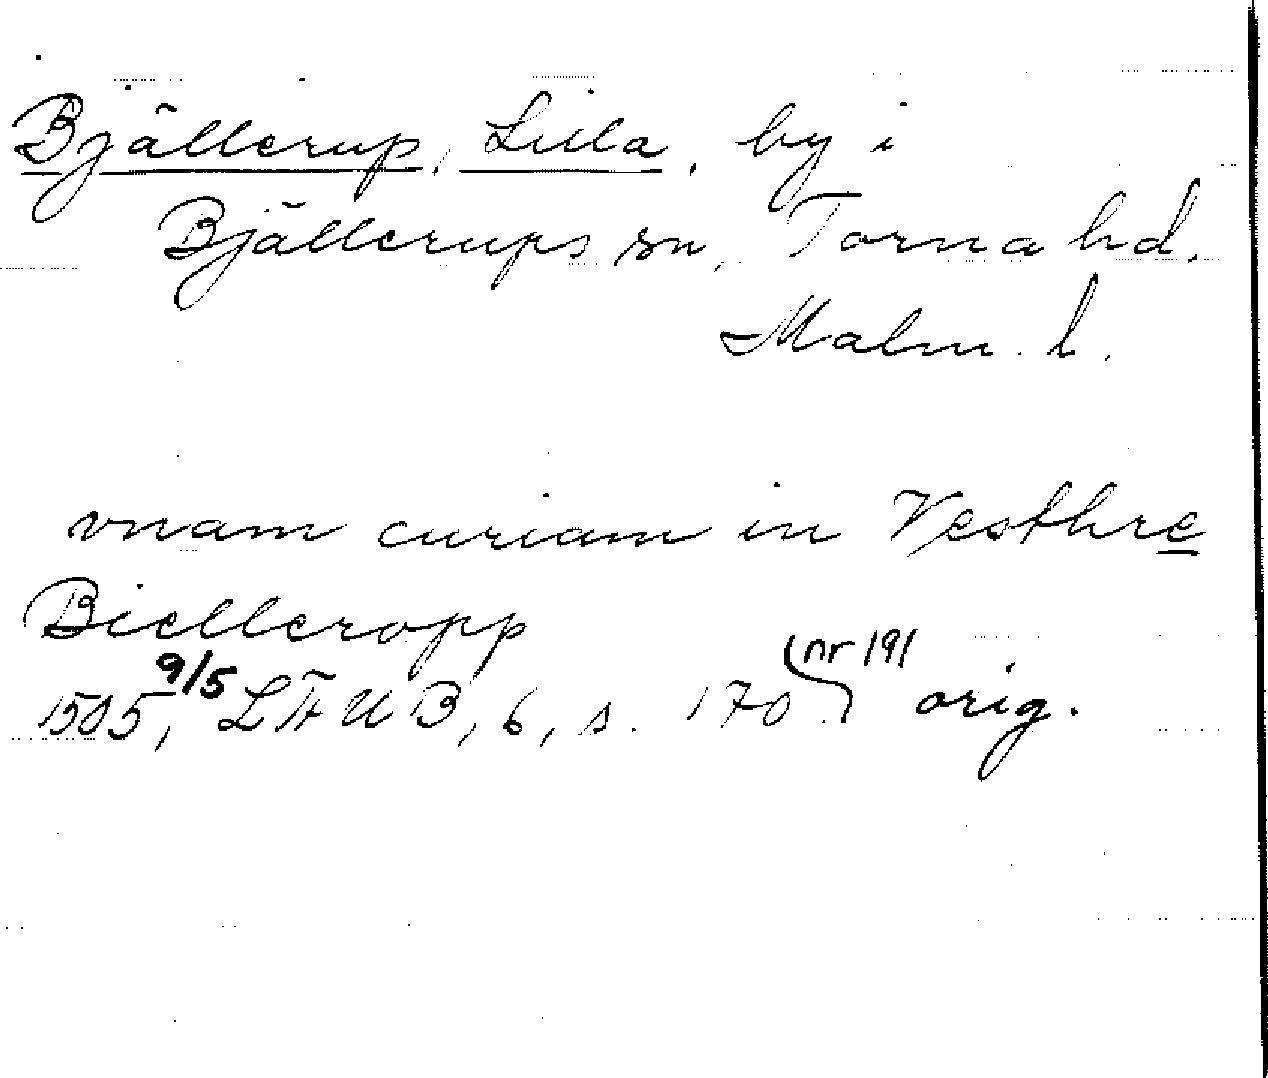 Bjällerup, Lilla, by i
Bjällerups sn, Torna hd.
Malm. l.
vnam curiam in Vesthre
Bielleropp
1505, 9/5 LÄUB, 6, s. 170. nr 191 orig.